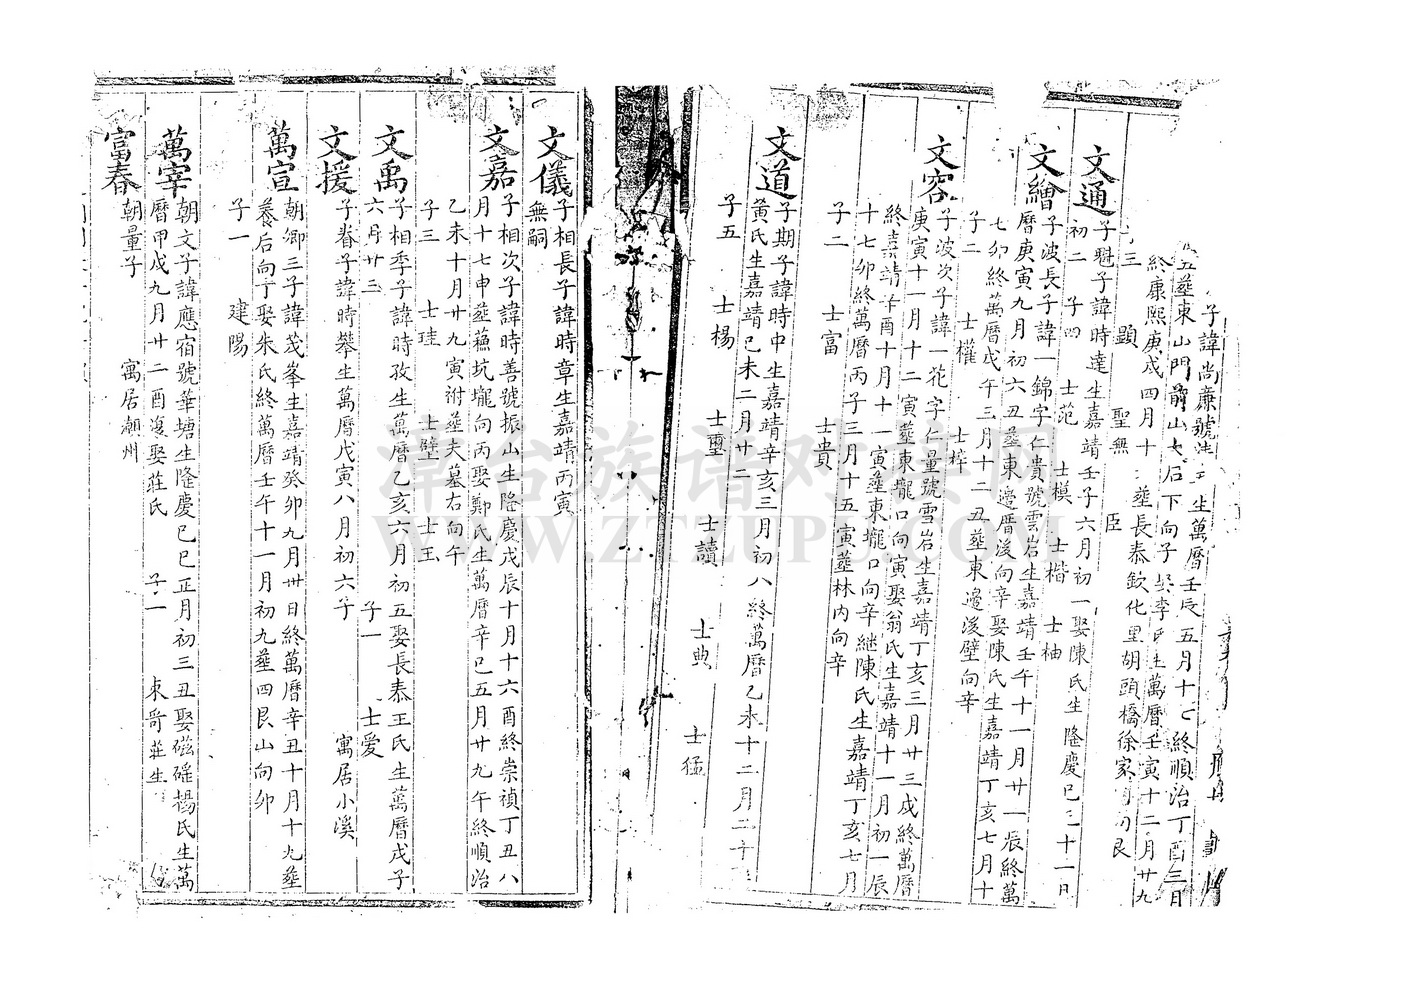 子諱尚廉號
生萬曆壬辰五月十七終順治丁酉三月
五葬東山門前山大石下向子娶李氏生萬曆壬寅十二月廿九
終康熙庚戌四月十 葬長泰欽化里胡頭橋徐家 向艮
三 顕 聖無 臣
文通 子魁子諱時達生嘉靖壬子六月初一娶陳氏生隆慶己巳十一月
初二 子四 士范 士模 士楷 士柚
文繪 子波長子諱一錦字仁貴號雲岩生嘉靖壬午十一月廿一辰終萬
曆庚寅九月初六丑葬東邊厝後向辛娶陳氏生嘉靖丁亥七月十
七卯終萬曆戊午三月十二丑葬東邊後壁向辛
子二 士權 士梓
文容 子波次子諱一花字仁量號雪岩生嘉靖丁亥三月廿三戌終萬曆
庚寅十一月十二寅葬東壠口向寅娶翁氏生嘉靖十一月初一辰
終嘉靖辛酉十月十一寅葬東壠口向辛継陳氏生嘉靖丁亥七月
十七卯終萬曆丙子三月十五寅葬林内向辛
子二 士富 士貴
文道 子期子諱時中生嘉靖辛亥三月初八終萬曆乙未十二月二十
黃氏生嘉靖己未二月廿二
子五 士楊 士璽 士讀 士典 士猛
文儀 子相長子諱時章生嘉靖丙寅
無嗣
文嘉 子相次子諱時善號振山生隆慶戊辰十月十六酉終崇禎丁丑八
月十七申葬蘓坑壠向丙娶鄭氏生萬曆辛巳五月廿九午終順治
乙未十月廿九寅祔葬夫墓右向午
子三 士珪 士璧 士玉
文禹 子相季子諱時孜生萬曆乙亥六月初五娶長泰王氏生萬曆戊子
六月廿三 子一 士爱
文援 子眷子諱時攀生萬曆戊寅八月初六子 寓居小溪
萬宣 朝卿三子諱茂峯生嘉靖癸卯九月卅日終萬曆辛丑十月十九葬
養后向丁娶朱氏終萬曆壬午十一月初九葬四艮山向卯
子一 建陽
萬宰 朝文子諱應宿號華塘生隆慶己巳正月初三丑娶磁磘楊氏生萬
曆甲戌九月廿二酉還娶莊氏 子一 東哥莊生
富春 朝量子 寓居潮州
漳台族谱对接网
WWW.ZTZUPU.COM